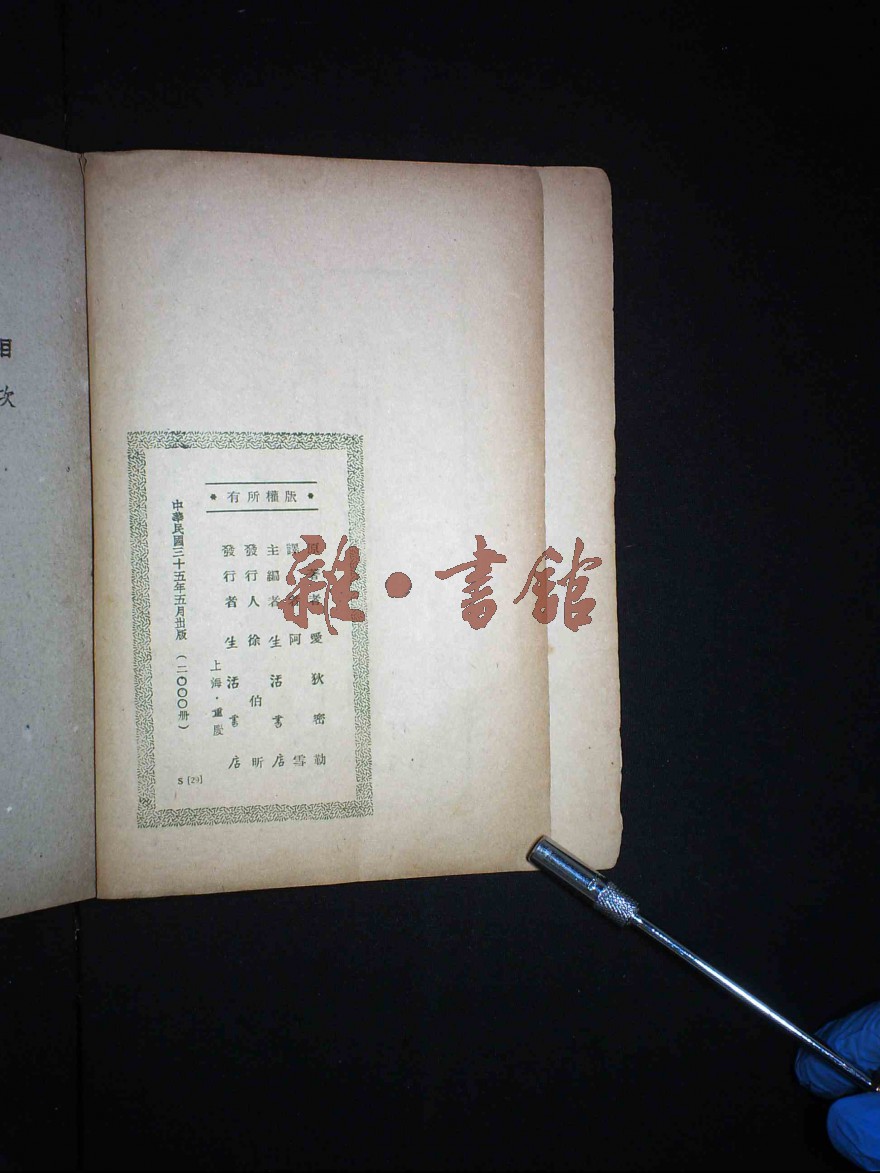 有所權版
原著者 愛狄密勒
譯者 阿雪
主編者 生活書店
發行人 徐伯昕
發行者 生活書店
上海・重慶
中華民國三十五年五月出版（二〇〇〇册）
S〔29〕
雜・書館
目次